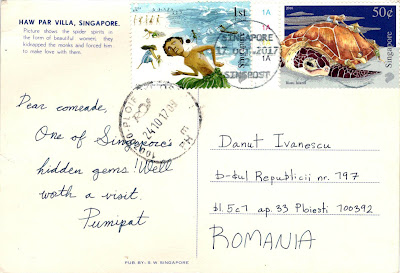 HAW PAR VILLA, SINGAPORE.
Picture shows the spider spirits in
the form of beautiful women, they
kidnapped the monks and forced him
to make love with them.
1st
Singapore
1A
1A
1A
SINGAPORE
17 OCT 2017
SINGPOST
50¢
Singapore
24.10.17.09
Dear comrade,
One of Singapore's
hidden gems! Well
worth a visit.
Pumipat
Danut Ivanescu
b-dul Republicii nr. 197
bl. 5c1 ap. 33 Ploiesti 100392
ROMANIA
PUB. BY: S W SINGAPORE